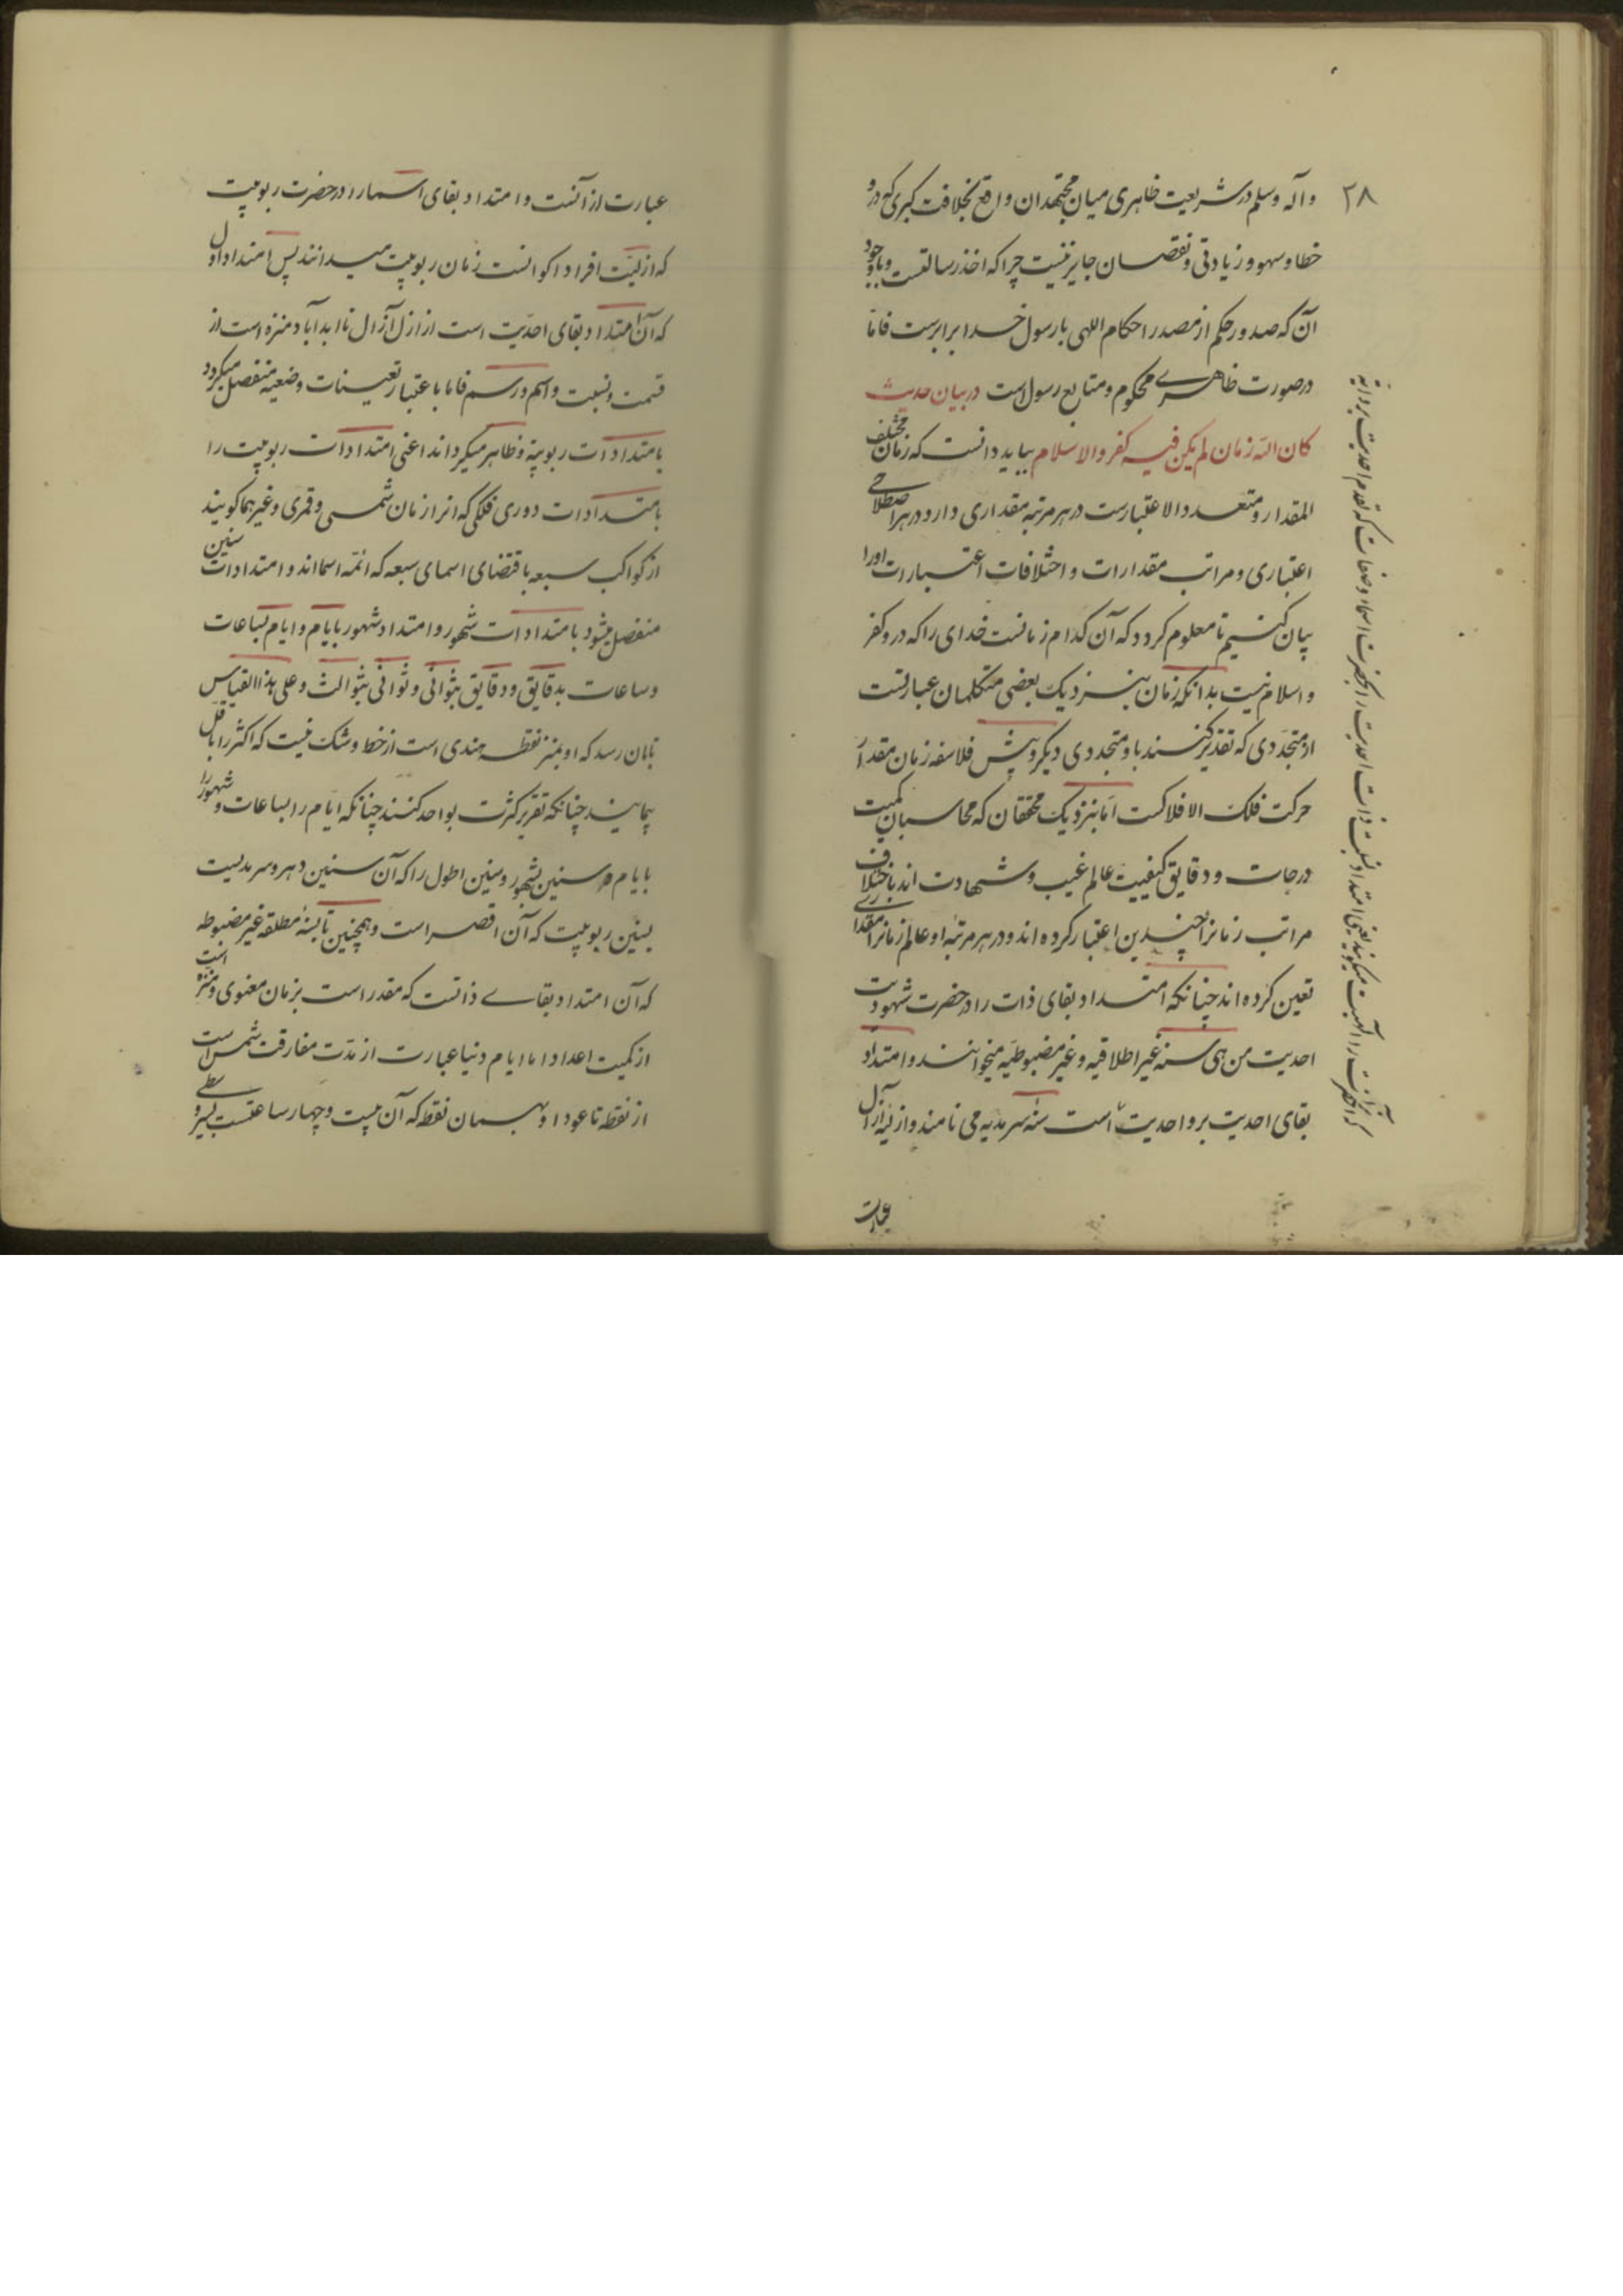 ۲۸
وآله وسلم در شریعت ظاهری میان مجتهدان واقع بخلافت کبری که درو
خطا و سهو و زیادتی و نقصان جایز نیست چرا که اخذ رسالتست و با وجود
آن که صدور حکم از مصدر احکام اللهی با رسول خدا برابرست فاما
در صورت ظاهری محکوم و متابع رسول است در بیان حدیث
کان الله زمان لم یکن فیه کفر و الاسلام بباید دانست که زمان مختلف
المقدار و متعدد الاعتبارست در هر مرتبه مقداری دارد و در هر اصطلاحی
اعتباری و مراتب مقدارات و اختلافات اعتبارات اورا
بیان کنیم تا معلوم کردد که آن کدام زمانست خدای را که درو کفر
و اسلام نیست بدانکه زمان بنزدیک بعضی متکلمان عبارتست
از متجددی که تقدیر کنند باو متجددی دیگر و پیش فلاسفه زمان مقدار
حرکت فلک الافلاکست اما بنزدیک محققان که محاسبان کمیت
درجات و دقایق کیفیت عالم غیب و شهادت اند باختلاف
مراتب زمانرا چندین اعتبار کرده اند و در هر مرتبه او عالم زمانرا مقداری
تعین کرده اند چنانکه امتداد بقای ذات را در حضرت شهودیت
احدیت من هی سنه غیر اطلاقیه و غیر مضبوطیه میخوانند و امتداد
بقای احدیت بر واحدیت است سنه سرمدیه می نامند و ازلیه آزال
عبارت
عبارت از آنست و امتداد بقای اسما را در حضرت ربوبیت
که ازلیت افراد اکوانست زمان ربوبیت میدانند پس امتداد اول
که آن امتداد بقای احدیت است از ازل آزال تا ابد آباد منزه است از
قسمت و نسبت و اسم و رسم فاما باعتبار تعینات وضعیه منفصل میکردد
بامتدادات ربوبیة و ظاهر میکرداند اعنی امتدادات ربوبیت را
بامتدادات دوری فلکی که انرا زمان شمسی و قمری و غیرهما کویند
از کواکب سبعه باقتضای اسمای سبعه که ائمه اسمااند و امتدادات سنین
منفصل میشود بامتدادات شهور و امتداد شهور بایام و ایام بساعات
و ساعات بدقایق و دقایق بثوانی و ثوانی بثوالث و علی هذا القیاس
تا بان رسد که او بمنزله نقطه هندی است از خط و شک نیست که اکثر را باقل
پیمایند چنانکه تقریر کثرت بواحد کنند چنانکه ایام را بساعات و شهور را
بایام و سنین بشهور و سنین اطول را که آن سنین دهر و سرمدیست
بسنین ربوبیت که آن اقصر است و همچنین تا بسنهٔ مطلقه غیر مضبوطه
که آن امتداد بقای ذاتست که مقدر است بزمان معنوی و منزه است
از کمیت اعداد اما ایام دنیا عبارت از مدت مفارقت شمس است
از نقطه تا عود او بهمان نقطه که آن بیست و چهار ساعتست بسیر وسطی